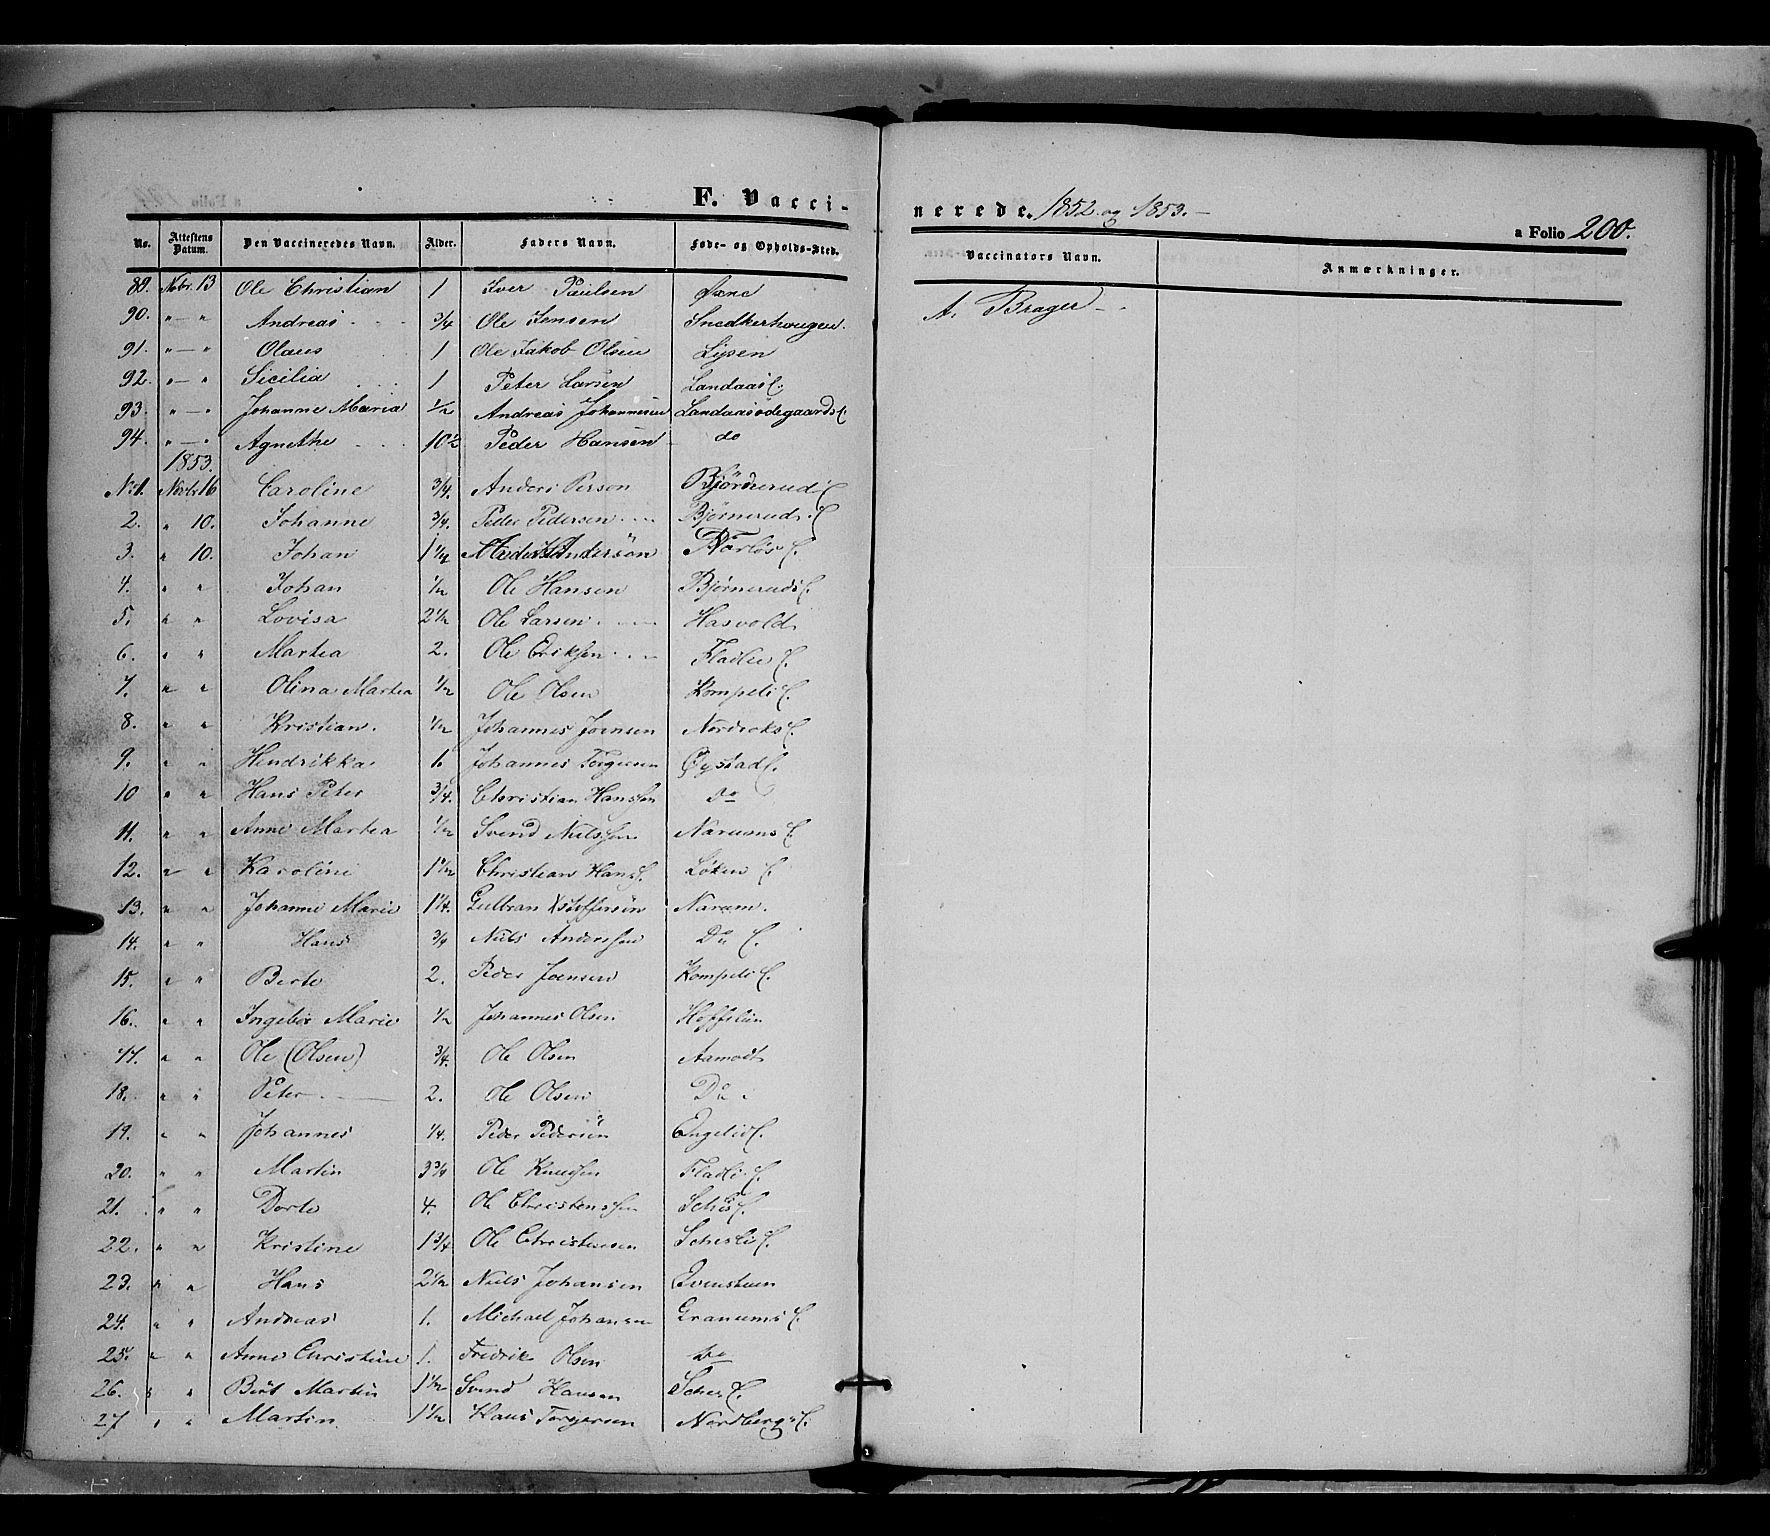 F. Vacci-
nerede. 1852 og 1853.
a Folio 200.
No. Attestens Datum. Den Vaccineredes Navn. Alder. Faders Navn. Føde- og Opholds-Sted. Vaccinators Navn. Anmærkninger.
89. Nobr. 13 Ole Christian 1 Iver Paulsen Øxne A. Brager
90. " — " Andreas 3/4 Ole Jensen Snedkerhougen.
91. " — " Olaus 1 Ole Jakob Olsen Lysen
92. " — " Sicilia 1 Peter Larsen Landaas
93. " — " Johanne Maria 1/2 Andreas Johannesen Landaasødegaards
94. " — " Agnethe 10 1/2 Peder Hansen do
1853.
No 1. Novbr 16 Caroline 3/4. Anders Person
2. " 10. Johanne 3/4. Peder Pedersen Bjørnerud
3. " 10. Johan 1 1/4 Andersøn
4. " " Johan 1/2 Ole Hansen Bjørneruds
5. " " Lovisa 2 1/2 Ole Larsen Hasvold
6. " " Martea 2. Ole Eriksen
7. " " Olina Martea 1/2 Ole Olsen Kompeli
8. " " Kristian. 1/2 Johannes Joensen
9. " " Hendrikka 1. Johannes Torgersen Øystad
10 " " Hans Peter 3/4. Christian Hanssen do
11. " " Anne Martea 1/2 Svend Nilssen Narums
12. " " Karoline 1 1/2 Christian Hans Løken
13. " " Johanne Marie 1 1/4. Gulbran Narum.
14. " " Hans 3/4 Niels Anderssen Do
15. " " Berte 2. Peder Joensen Kompeli
16. " " Ingebor Marie 1/2 Johannes Olsen Hoffslien
17. " " Ole (Olsen) 3/4. Ole Olsen Aamodt
18. " " Peter 2. Ole Olsen Do
19. " " Johannes 1/4. Peder Pedersen Engelie
20. " " Martin 3 3/4 Ole Knudsen Fladli
21. " " Dorte 4. Ole Christenssen
22. " " Kristine 1 3/4 Ole Christensen
23. " " Hans 2 1/2 Niels Johansen
24. " " Andreas 1. Michael Johansen Granums
25. " " Anne Christine 1. Fredrik Olsen do
26. " " Martin 1 1/2 Svend Hansen
27 " " Martin 1 1/2 Hans Torgersen Nordbergs